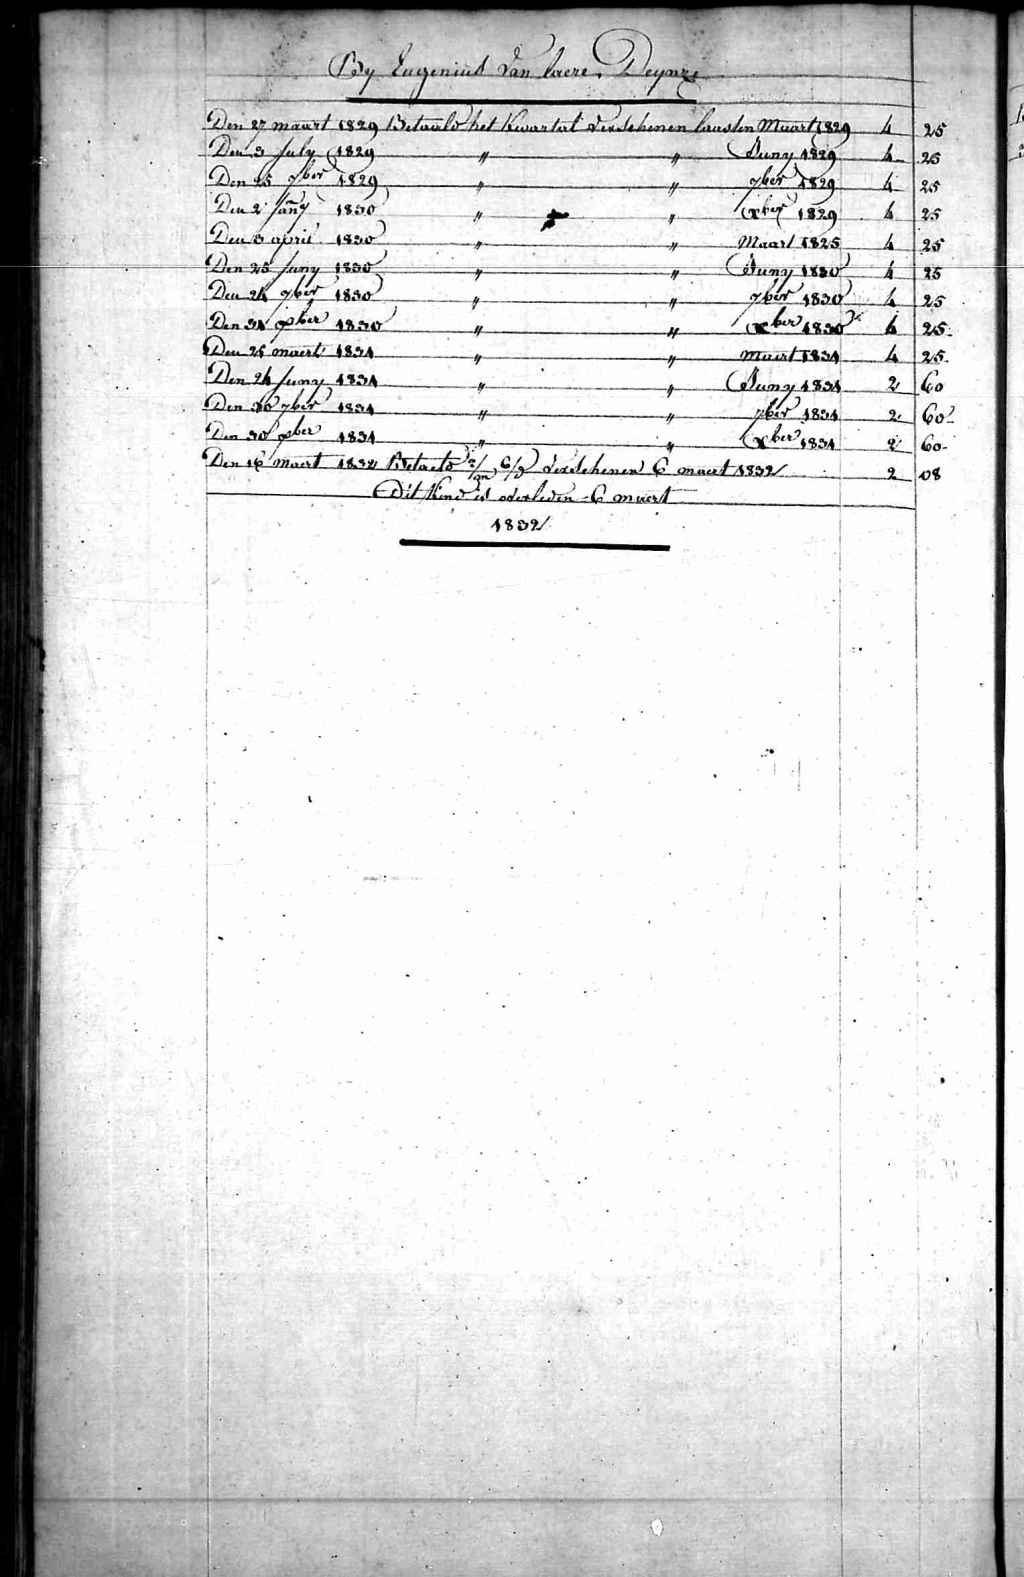 By Eugenius Van laere, Deynze
Den 27 maart 1829 Betaald het Kwartal verschenen laasten Maart 1829 4 25
Den 3 July 1829 " " Juny 1829 4 25
Den 25 7ber 1829 " " 7ber 1829 4 25
Den 2 Jany 1830 " " xber 1829 4 25
Den 3 april 1830 " " Maart 1825 4 25
Den 25 Juny 1830 " " Juny 1830 4 25
Den 24 7ber 1830 " " 7ber 1830 4 25
Den 31 xber 1830 " " xber 1830 4 25
Den 25 maert 1831 " " maert 1831 4 25
Den 24 Juny 1831 " " Juny 1831 2 60
Den 30 7ber 1831 " " 7ber 1831 2 60
Den 30 xber 1831 " " xber 1831 2 60
Den 16 maert 1832 Betaeld 2/m 6/d verschenen 6 maert 1832 2 08
Dit Kind is overleden 6 maert
1832